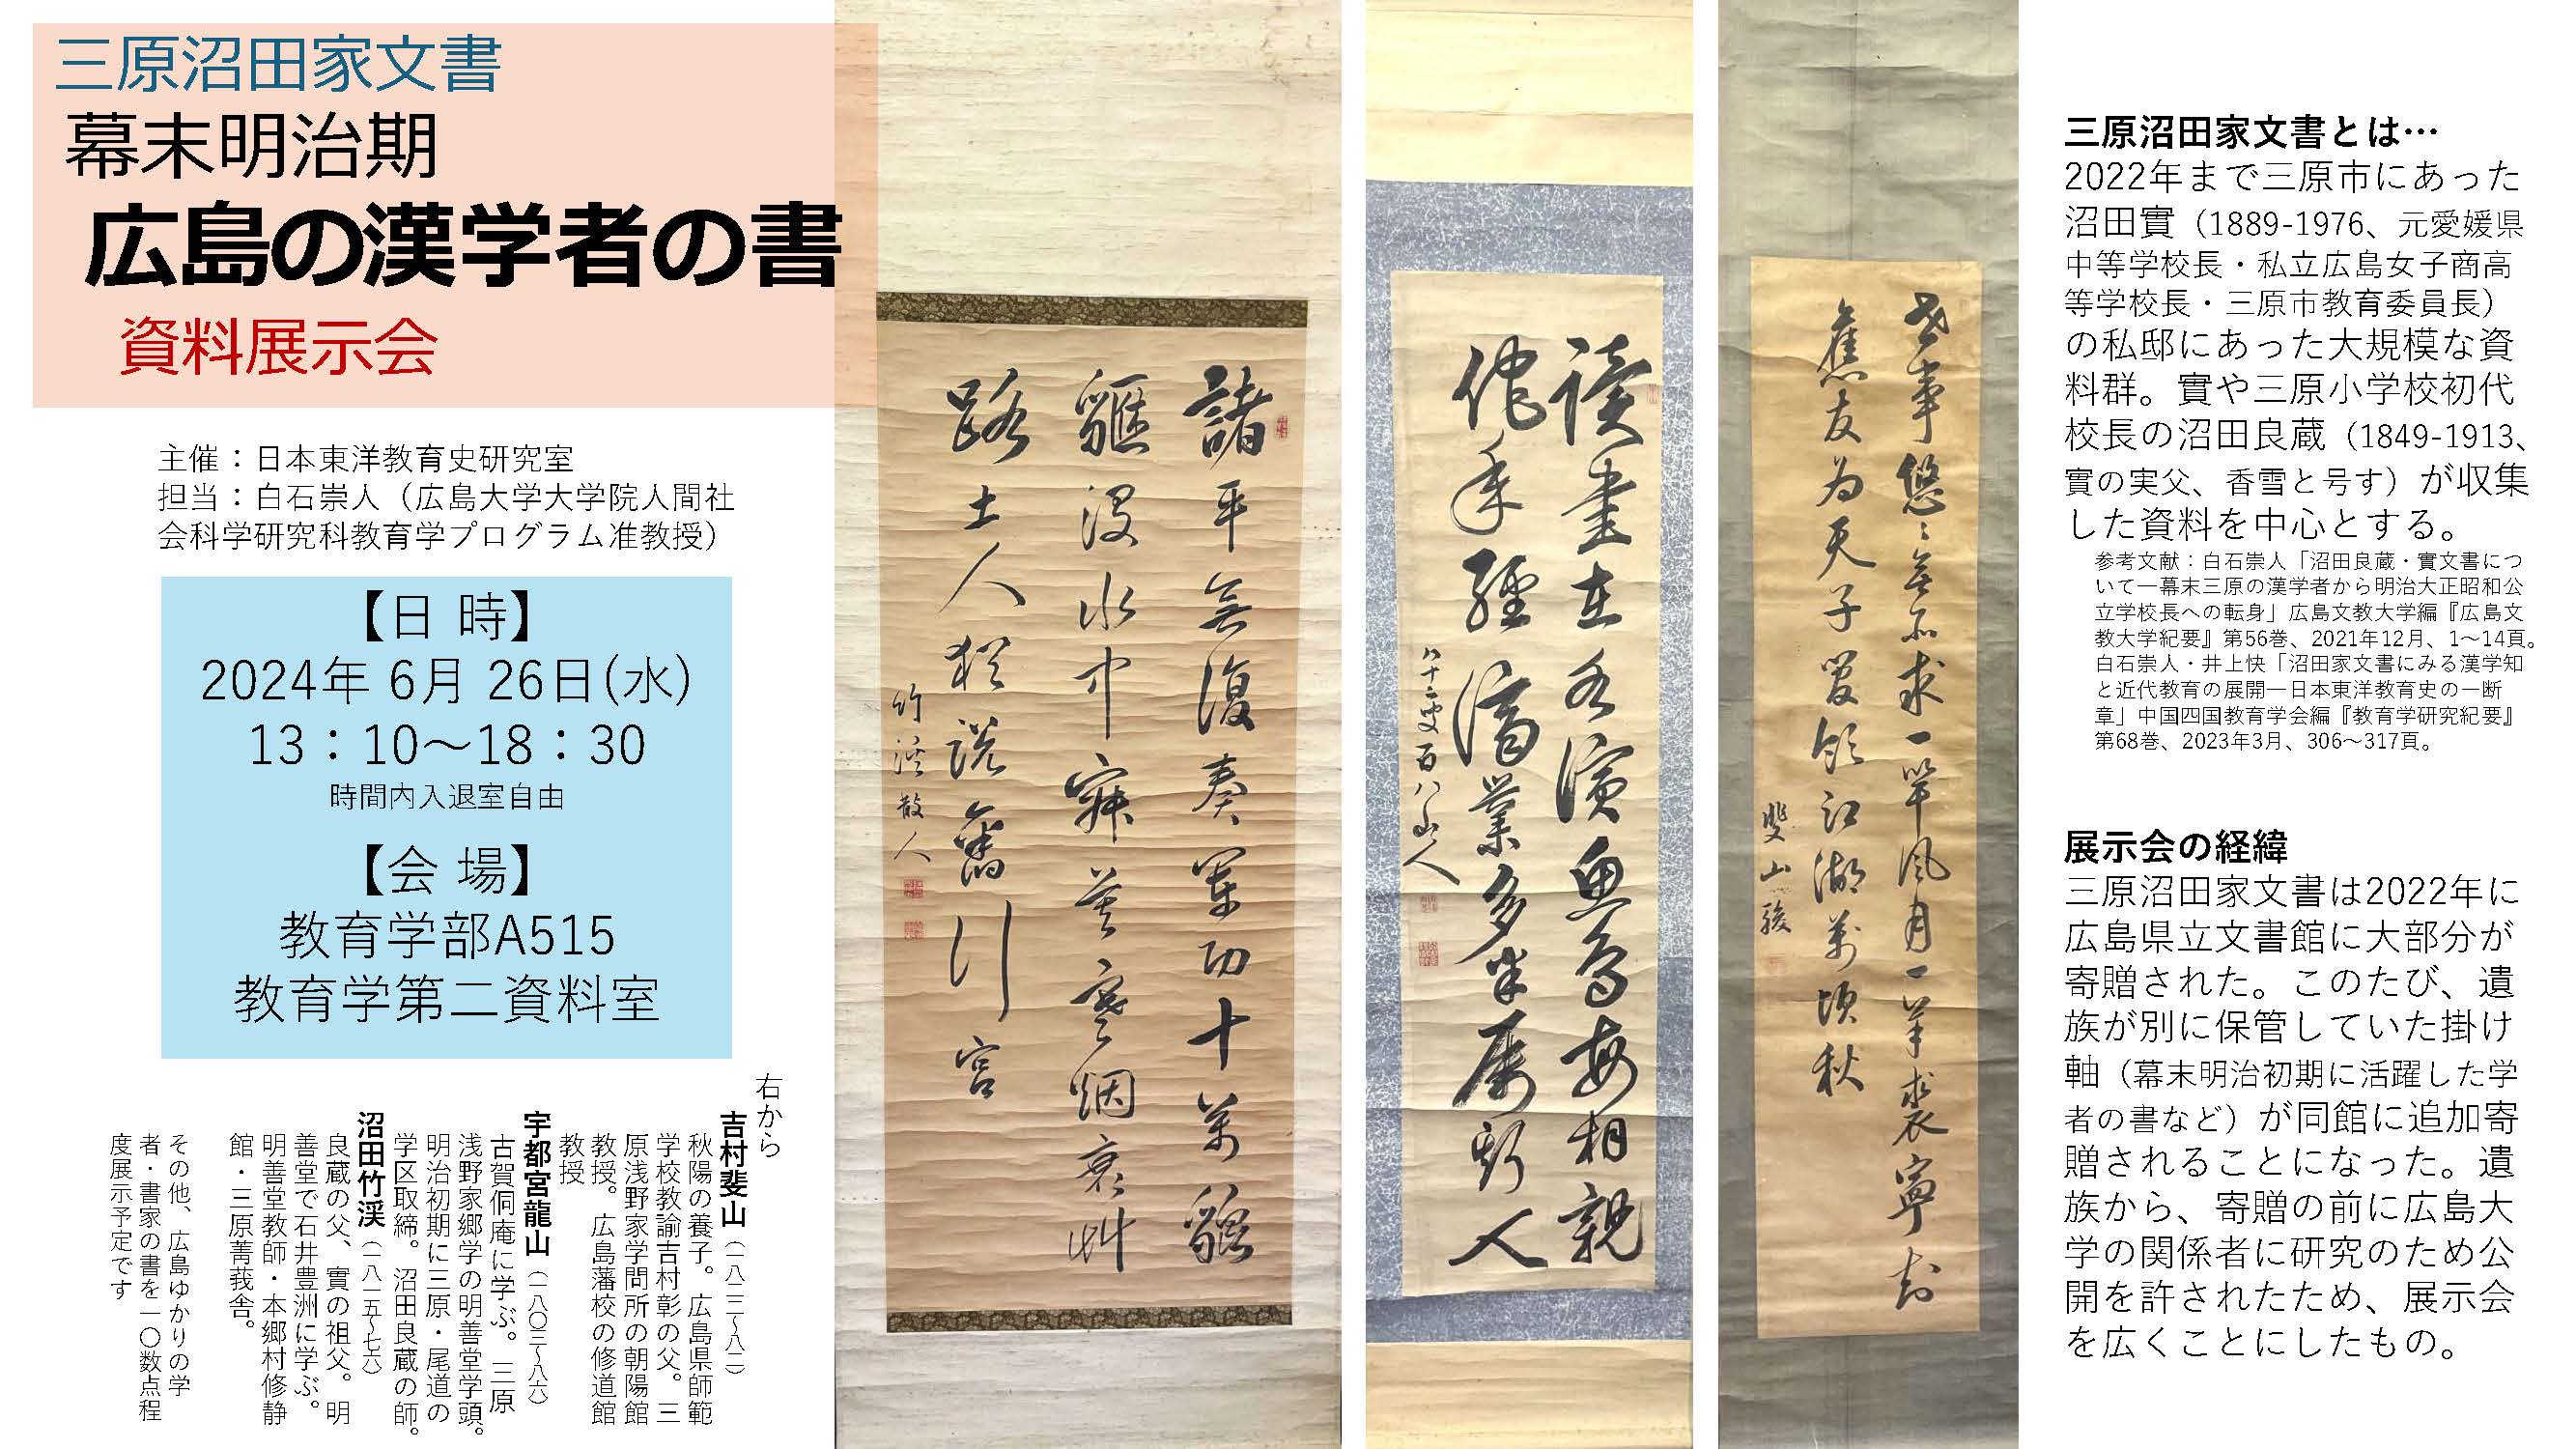 三原沼田家文書
幕末明治期
広島の漢学者の書
資料展示会
主催：日本東洋教育史研究室
担当：白石崇人（広島大学大学院人間社
会科学研究科教育学プログラム准教授）
【日 時】
2024年 6月 26日(水)
13：10～18：30
時間内入退室自由
【会 場】
教育学部A515
教育学第二資料室
右から
吉村斐山（一八二三～八二）
秋陽の養子。広島県師範
学校教諭吉村彰の父。三
原浅野家学問所の朝陽館
教授。広島藩校の修道館
教授
宇都宮龍山（一八〇三～八六）
古賀侗庵に学ぶ。三原
浅野家郷学の明善堂学頭。
明治初期に三原・尾道の
学区取締。沼田良蔵の師。
沼田竹渓（一八一五～七六）
良蔵の父、實の祖父。明
善堂で石井豊洲に学ぶ。
明善堂教師・本郷村修静
館・三原菁莪舎。
その他、広島ゆかりの学
者・書家の書を一〇数点程
度展示予定です
世事悠〻無求一竿風月一羊裘寧
舊友為天子領江湖萬頃秋
斐山駿
读書在水濱魚鳥每相親
他年經濟業多半屬斯人
八十二叟百八山人
諸平無復奏軍功十萬貔
貅没水中寂寞寒烟衰艸
路土人猶説舊行宮
竹渓散人
三原沼田家文書とは…
2022年まで三原市にあった
沼田實（1889-1976、元愛媛県
中等学校長・私立広島女子商高
等学校長・三原市教育委員長）
の私邸にあった大規模な資
料群。實や三原小学校初代
校長の沼田良蔵（1849-1913、
實の実父、香雪と号す）が収集
した資料を中心とする。
参考文献：白石崇人「沼田良蔵・實文書につ
いて―幕末三原の漢学者から明治大正昭和公
立学校長への転身」広島文教大学編『広島文
教大学紀要』第56巻、2021年12月、1～14頁。
白石崇人・井上快「沼田家文書にみる漢学知
と近代教育の展開―日本東洋教育史の一断
章」中国四国教育学会編『教育学研究紀要』
第68巻、2023年3月、306～317頁。
展示会の経緯
三原沼田家文書は2022年に
広島県立文書館に大部分が
寄贈された。このたび、遺
族が別に保管していた掛け
軸（幕末明治初期に活躍した学
者の書など）が同館に追加寄
贈されることになった。遺
族から、寄贈の前に広島大
学の関係者に研究のため公
開を許されたため、展示会
を広くことにしたもの。